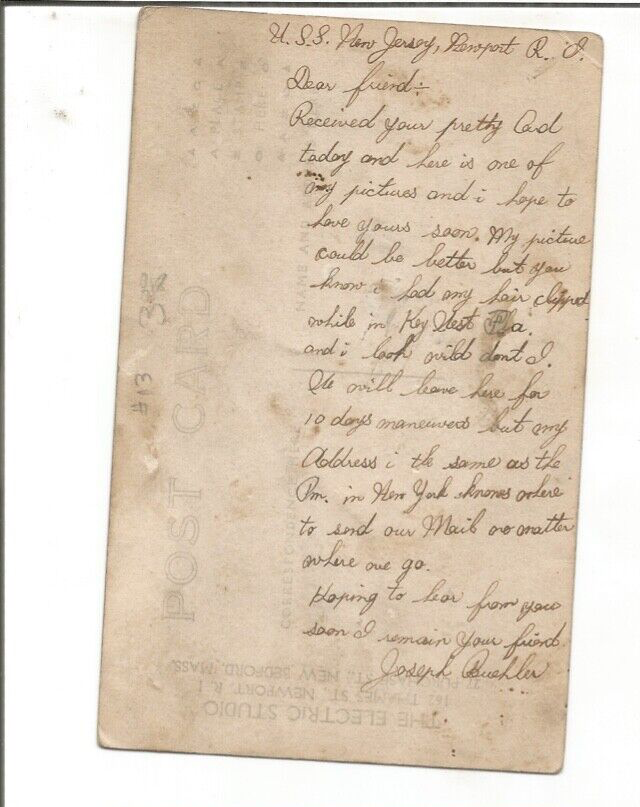 U.S.S. New Jersey, Newport R. I.
Dear friend:-
Received your pretty Card
today and here is one of
my pictures and i hope to
have yours soon. My picture
could be better but you
know i had my hair clipped
while in Key West Fla.
and i look wild dont I.
We will leave here for
10 days maneuvers but my
Address i the same as the
Pm. in New York knows where
to send our Mail no matter
where we go.
Hoping to hear from you
soon I remain your friend.
Joseph Buehler
#13
POST CARD
CORRESPONDENCE
NAME AND
THE ELECTRIC STUDIO
THAMES ST. NEWPORT, R. I.
ST., NEW BEDFORD, MASS.